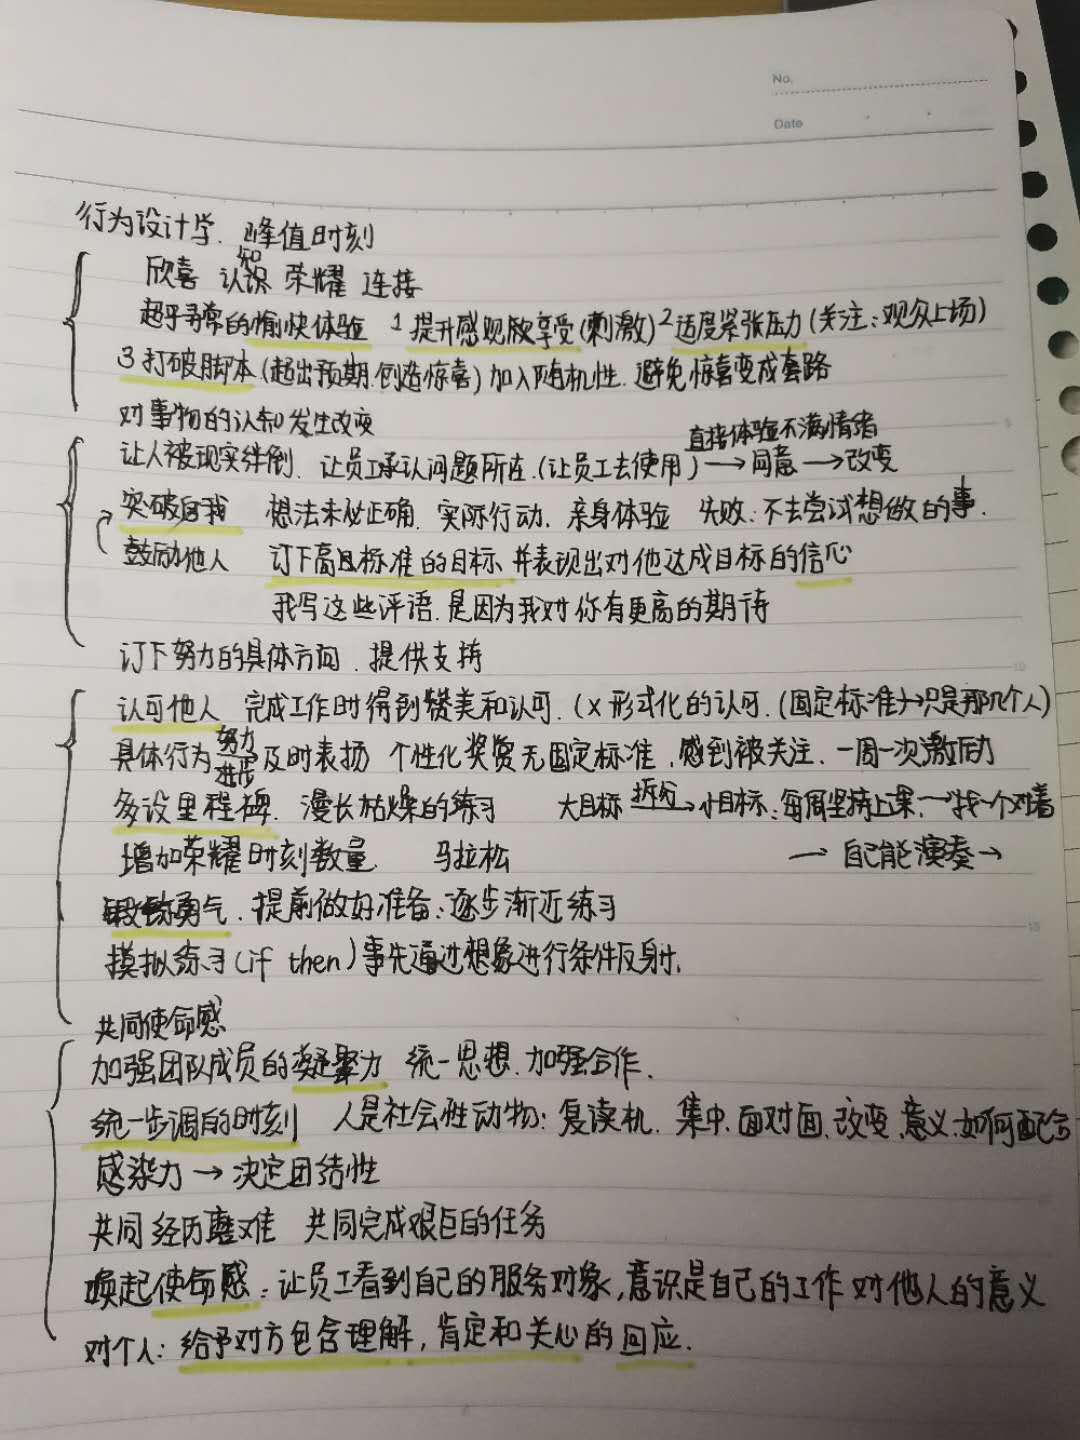 No.
Date
行为设计学. 峰值时刻
欣喜 认知识 荣耀 连接
超乎寻常的愉快体验 1 提升感观级享受(刺激) 2 适度紧张压力(关注:观众上场)
3 打破脚本(超出预期.创造惊喜)加入随机性. 避免惊喜变成套路
对事物的认知发生改变
直接体验不满情绪
让人被现实绊倒. 让员工承认问题所在.(让员工去使用)→同意→改变
突破自我 想法未必正确. 实际行动. 亲身体验 失败:不去尝试想做的事.
鼓励他人 订下高且标准的目标.并表现出对他达成目标的信心
我写这些评语.是因为我对你有更高的期待
订下努力的具体方向.提供支持
认可他人 完成工作时得到赞美和认可.(x 形式化的认可.(固定标准)→只是那几个人)
努力
具体行为 及时表扬 个性化奖赏无固定标准. 感到被关注. 一周一次激励
进步
多设里程碑. 漫长枯燥的练习 大目标 拆分→小目标:每周坚持上课.→找一个对着
增加荣耀时刻数量 马拉松 → 自己能演奏→
锻炼勇气. 提前做好准备:逐步渐近练习
摸拟练习(if then)事先通过想象进行条件反射.
共同使命感
加强团队成员的凝聚力 统一思想.加强合作.
统一步调的时刻 人是社会性动物:复读机. 集中.面对面.改变.意义.如何配合
感染力→决定团结性
共同经历磨难 共同完成艰巨的任务
唤起使命感:让员工看到自己的服务对象,意识是自己的工作对他人的意义
对个人:给予对方包含理解,肯定和关心的回应.